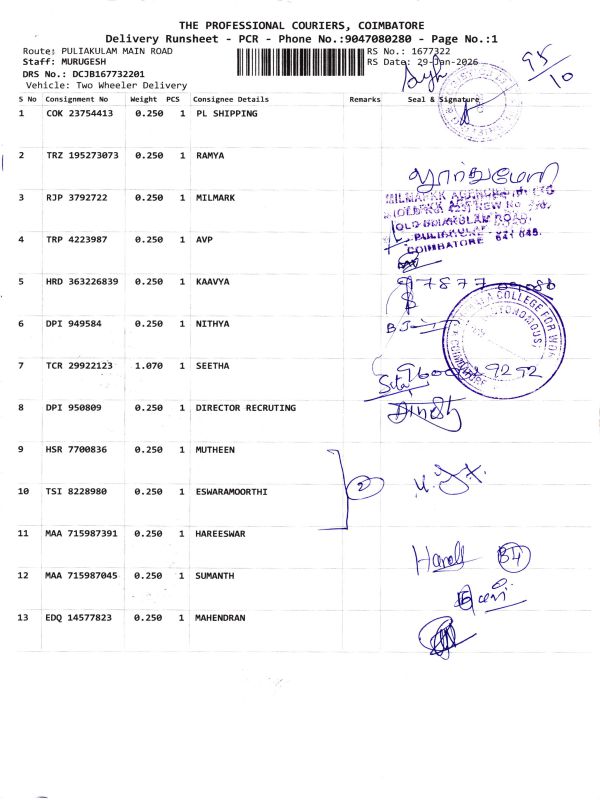 THE PROFESSIONAL COURIERS, COIMBATORE
Delivery Runsheet - PCR - Phone No.:9047080280 - Page No.:1
Route: PULIAKULAM MAIN ROAD RS No.: 1677322
Staff: MURUGESH RS Date: 29-Jan-2026
DRS No.: DCJB167732201
Vehicle: Two Wheeler Delivery
95/10
S No Consignment No Weight PCS Consignee Details Remarks Seal & Signature
1 COK 23754413 0.250 1 PL SHIPPING
2 TRZ 195273073 0.250 1 RAMYA
3 RJP 3792722 0.250 1 MILMARK
PULIAKULAM
COIMBATORE - 641 045.
4 TRP 4223987 0.250 1 AVP
5 HRD 363226839 0.250 1 KAAVYA
6 DPI 949584 0.250 1 NITHYA
COLLEGE FOR WOM
(AUTONOMOUS)
COIMBATORE
7 TCR 29922123 1.070 1 SEETHA
Sita
8 DPI 950809 0.250 1 DIRECTOR RECRUTING
Dinesh
9 HSR 7700836 0.250 1 MUTHEEN
2
10 TSI 8228980 0.250 1 ESWARAMOORTHI
11 MAA 715987391 0.250 1 HAREESWAR
12 MAA 715987045 0.250 1 SUMANTH
13 EDQ 14577823 0.250 1 MAHENDRAN